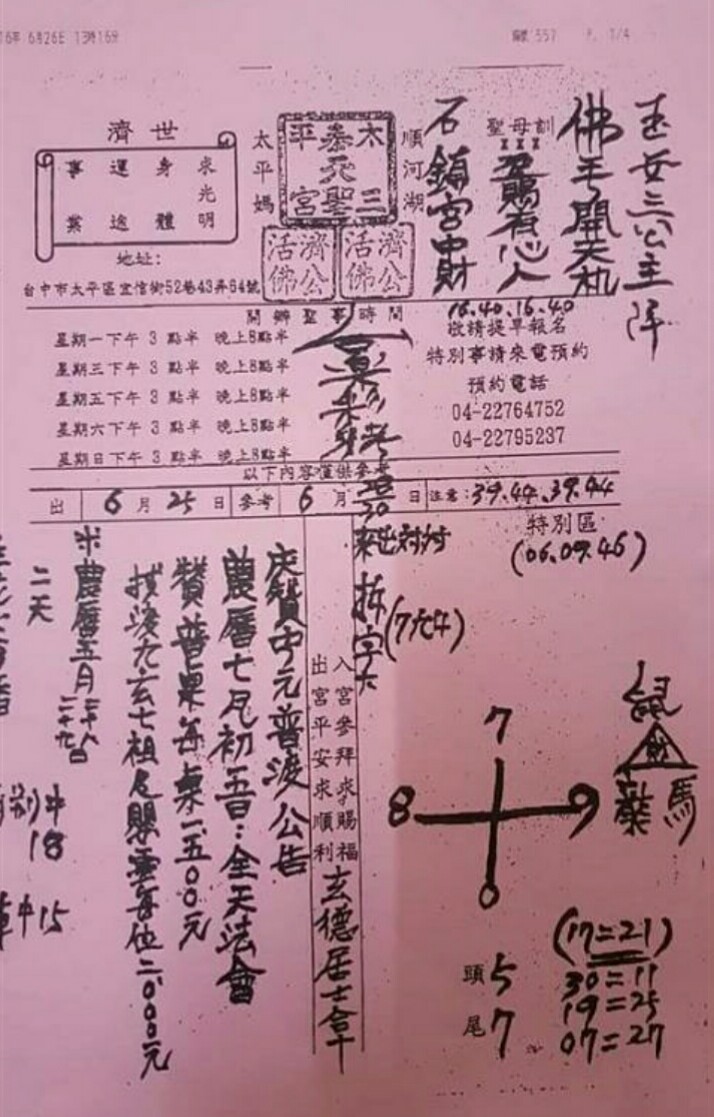 6月26日 13時16分
557 P. 1/4
玉女三公主降
佛手開天机
聖母訓
賜有心人
石鎮宮中財
16.40.16.40
順河湖
太平
泰元
三聖宮
太平媽
濟公活佛
濟公活佛
濟世
求光明
身體
運途
事業
地址:
台中市太平區宜信街52巷43弄64號
開辦聖事時間
星期一下午 3 點半 晚上8點半
星期三下午 3 點半 晚上8點半
星期五下午 3 點半 晚上8點半
星期六下午 3 點半 晚上8點半
星期日下午 3 點半 晚上8點半
敬請提早報名
特別事請來電預約
預約電話
04-22764752
04-22795237
以下內容僅供參考
出 6月25日 參考 6月 日 注意:39.44.39.44
特別區
(06.09.46)
拆字六
(7九4)
入宮參拜求賜福
出宮平安求順利
玄德居士拿
慶贊中元普渡公告
農曆七月初五日:全天法會
贊普桌每桌一、五00元
拔渡九玄七祖 嬰靈每位二、000元
農曆五月二十八日
二十九
二天
18
15
7
8 9
0
鼠
財
龍 馬
頭5
尾7
(17=21)
30=11
19=25
07=27